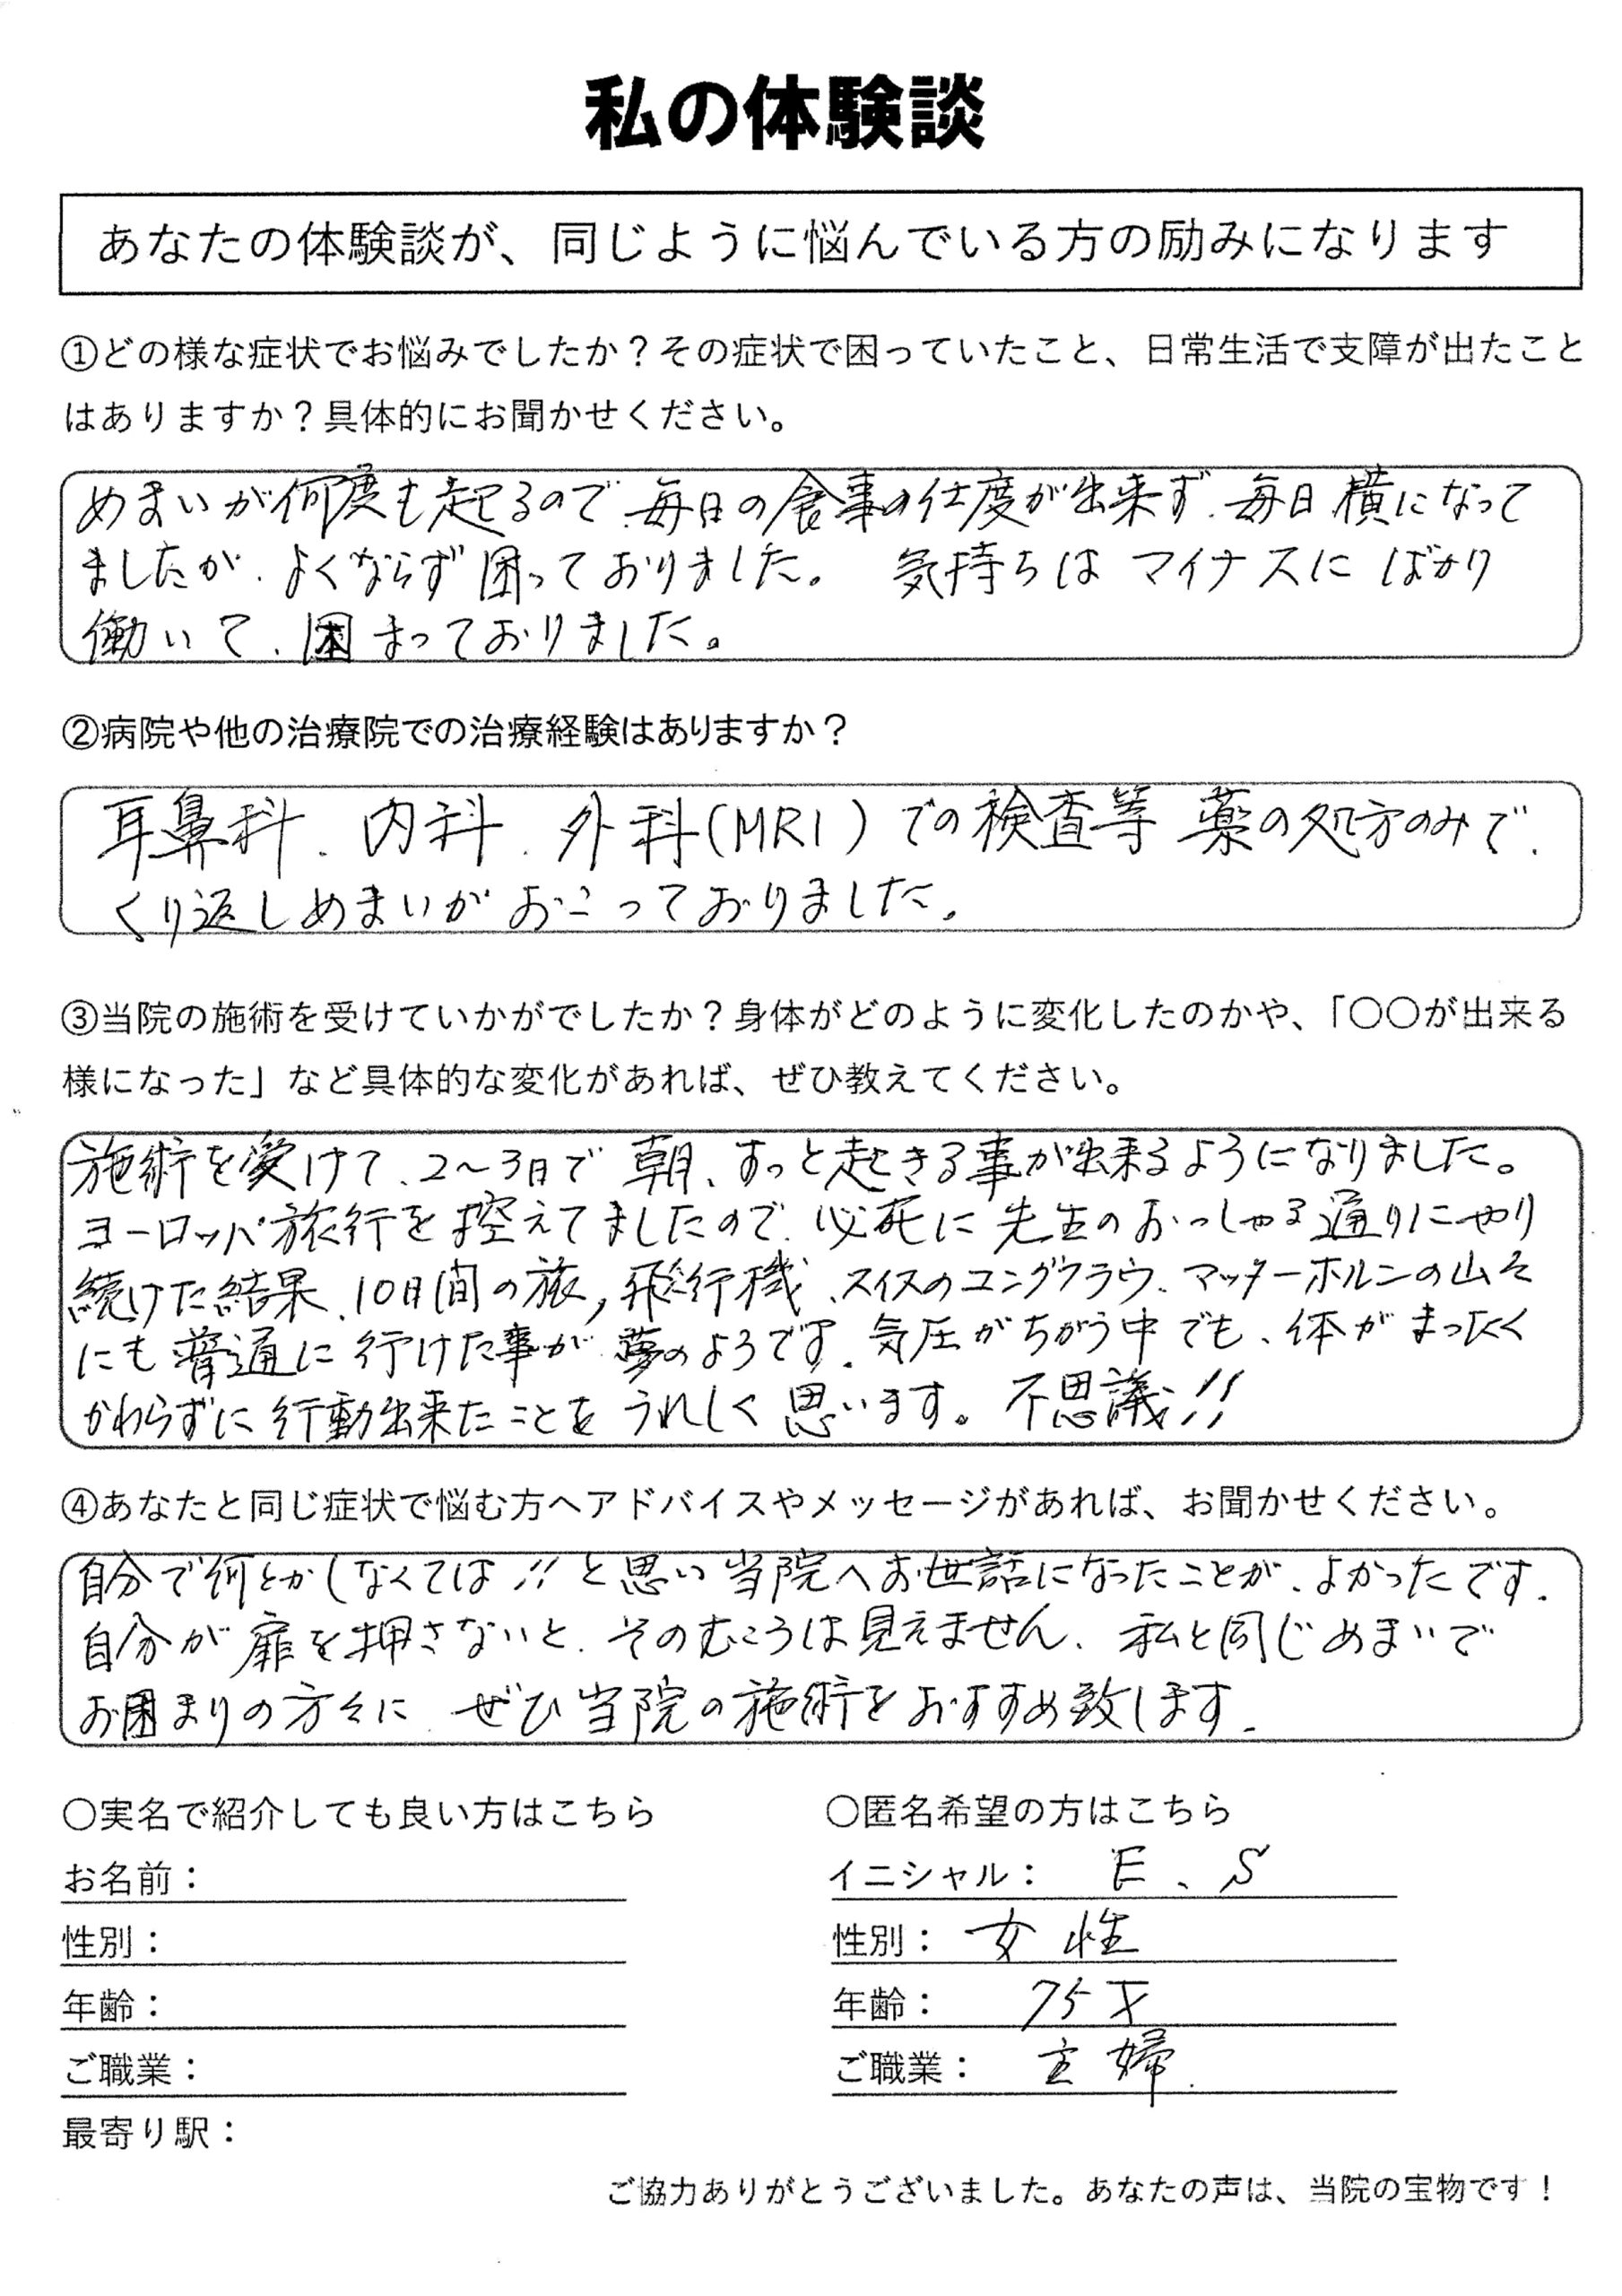 私の体験談
あなたの体験談が、同じように悩んでいる方の励みになります
①どの様な症状でお悩みでしたか？その症状で困っていたこと、日常生活で支障が出たこと
はありますか？具体的にお聞かせください。
めまいが何度も起るので、毎日の食事の仕度が出来ず、毎日横になって
ましたが、よくならず困っておりました。 気持ちは マイナスに ばかり
働いて、困まっておりました。
②病院や他の治療院での治療経験はありますか？
耳鼻科、内科、外科(MRI)での検査等 薬の処方のみで、
くり返しめまいがおこっておりました。
③当院の施術を受けていかがでしたか？身体がどのように変化したのかや、「〇〇が出来る
様になった」など具体的な変化があれば、ぜひ教えてください。
施術を受けて、2〜3日で 朝、すっと起きる事が出来るようになりました。
ヨーロッパ旅行を控えてましたので、必死に先生のおっしゃる通りにやり
続けた結果、10日間の旅，飛行機、スイスのユングフラウ、マッターホルンの山々
にも普通に行けた事が夢のようです。気圧がちがう中でも、体がまったく
かわらずに行動出来たことをうれしく思います。不思議!!
④あなたと同じ症状で悩む方へアドバイスやメッセージがあれば、お聞かせください。
自分で何とかしなくては!!と思い当院へお世話になったことが、よかったです。
自分が扉を押さないと、そのむこうは見えません、私と同じめまいで
お困まりの方々に、ぜひ当院の施術をおすすめ致します。
〇実名で紹介しても良い方はこちら
お名前：
性別：
年齢：
ご職業：
最寄り駅：
〇匿名希望の方はこちら
イニシャル： E、S
性別： 女性
年齢： 75才
ご職業： 主婦
ご協力ありがとうございました。あなたの声は、当院の宝物です！